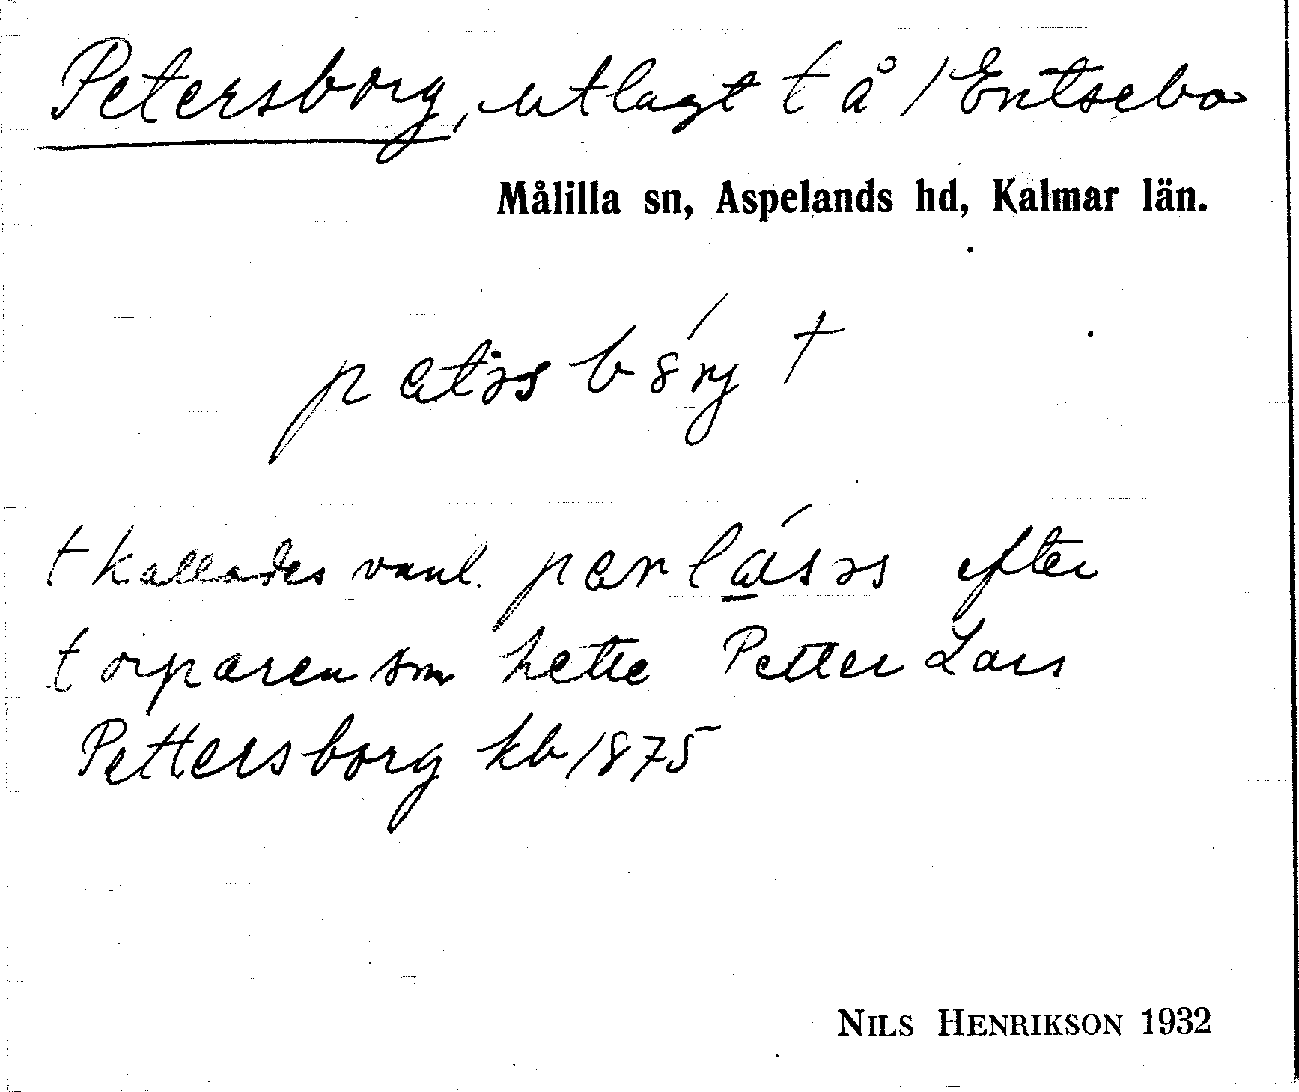 Petersborg, utlagt t å / Entsebo
Målilla sn, Aspelands hd, Kalmar län.
†
† kallades vanl. efter
torparen som hette Petter Lars
Pettersborg kb 1875
NILS HENRIKSON 1932